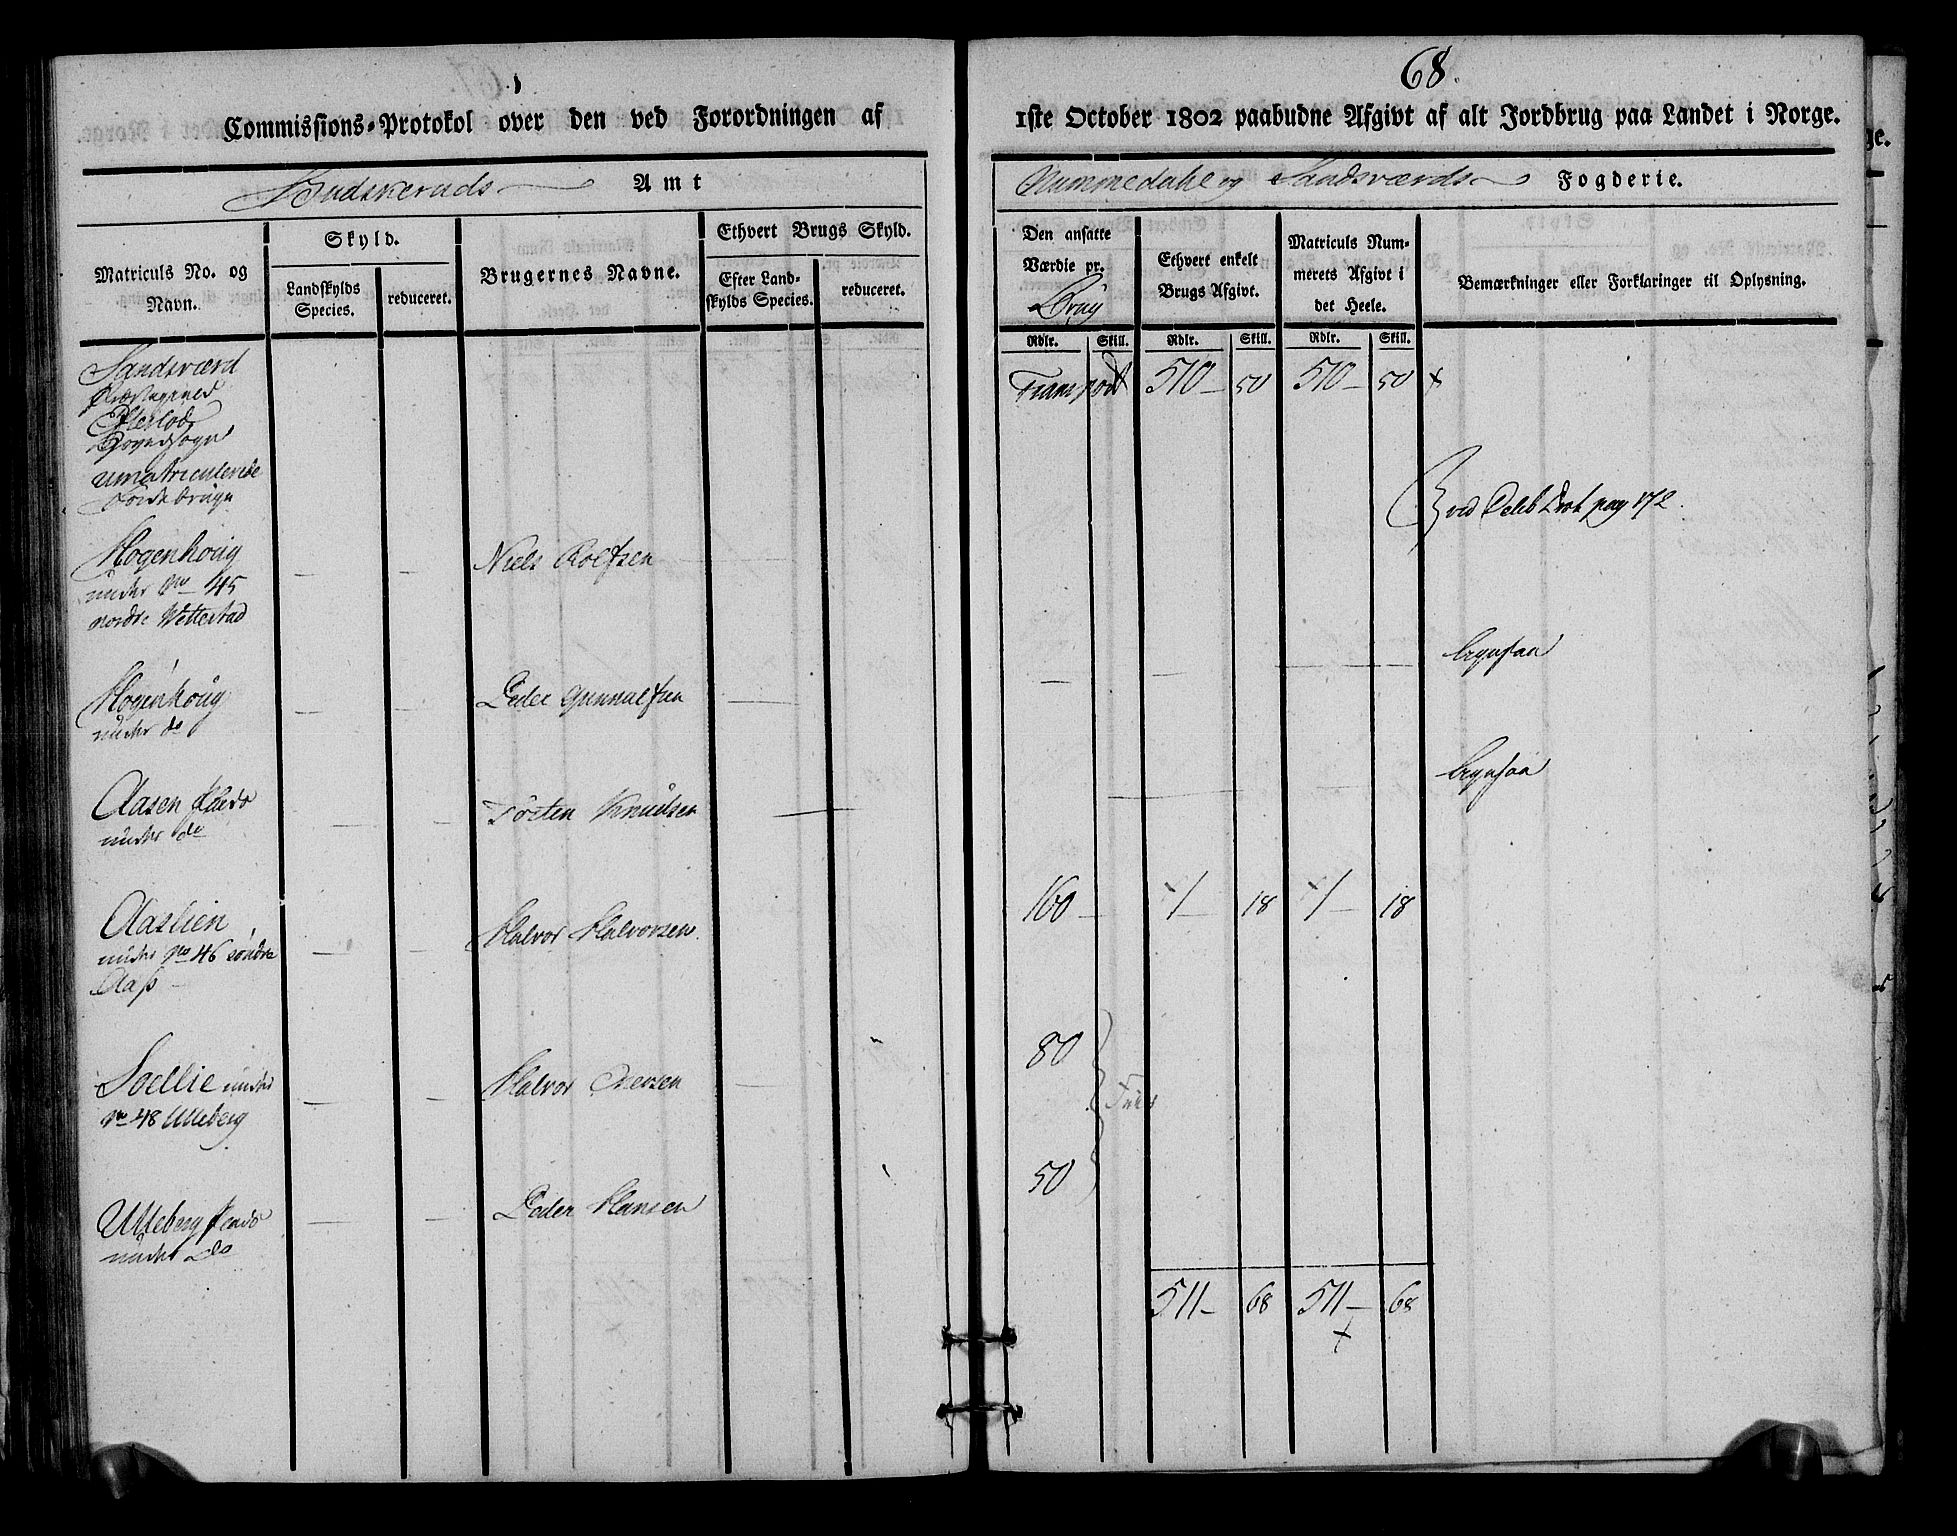 68.
Commissions-Protokol over den ved Forordningen af
1ste October 1802 paabudne Afgivt af alt Jordbrug paa Landet i Norge.
Budskeruds Amt
Nummedahl og Sandsværds Fogderie.
Matriculs No. og
Navn.
Skyld.
Landskylds
Species.
reduceret.
Brugernes Navne.
Ethvert Brugs Skyld.
Efter Land-
skylds Species.
reduceret.
Den ansatte
Værdie pr.
Brug
Rdlr. Skill.
Ethvert enkelt
Brugs Afgivt.
Rdlr. Skill.
Matriculs Num-
merets Afgivt i
det Heele.
Rdlr. Skill.
Bemærkninger eller Forklaringer til Oplysning.
Sandsværd
Præstegield
Efteløds
Hovedsogn
umatriculerede
Jordebruge
Transport 510 50 510 50
ved Deleb Prot pag 172
Hogenhoug
under No 45
nordre Wettestad
Niels Rolfsen
Hogenhoug
under do
Peder Gunnulfsen
Aasen
under do
Torsten Knudsen
Aaslien
under No 46 søndre
Aas
Halvor Halvorsen
160 1 18 1 18
Soellie under
No 48 Ulleberg
Halvor Iversen
80
Frie
Ulleberg
under do
Peder Hansen
50
511 68 511 68